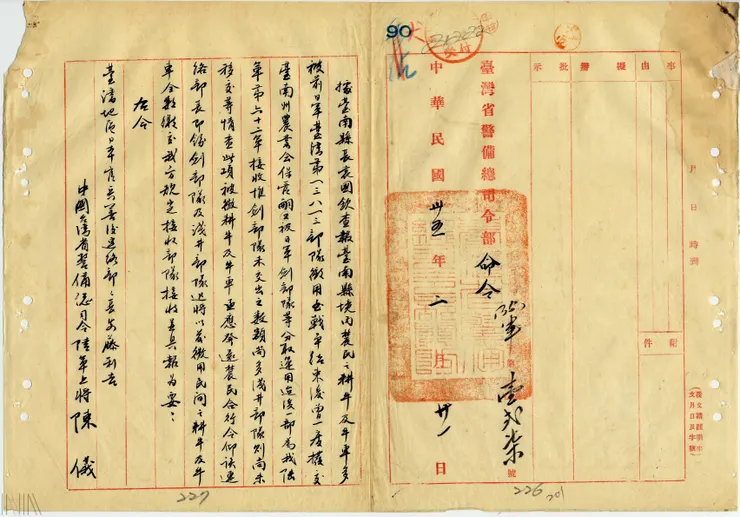 事由
擬辦
批示
月日時到
附件
臺灣省警備總司令部命令 軍 第壹弍柒號
中華民國卅五年二月 日
90
226
據臺南縣長袁國欽查報臺南縣境內農民之耕牛及牛車多
被前日軍臺湾第一三八一三部隊徵用 戰爭結束後曾一度撥交
臺南州農業會保管嗣又被日軍劍部隊等分取運用迨後一部為我陸
軍第六十二軍接收惟劍部隊未交出之數類尚多淺井部隊則尚未
移交等情查此項被徵耕牛及牛車亟應發還農民合行令仰該連
絡部長即飭劍部隊及淺井部隊迅將以前徵用民間之耕牛及牛
車全數繳交我方規定接收部隊接收並具報為要：
右令
臺灣地區日本官兵善後連絡部部長安藤利吉
中國台湾省警備總司令陸軍上將陳儀
227